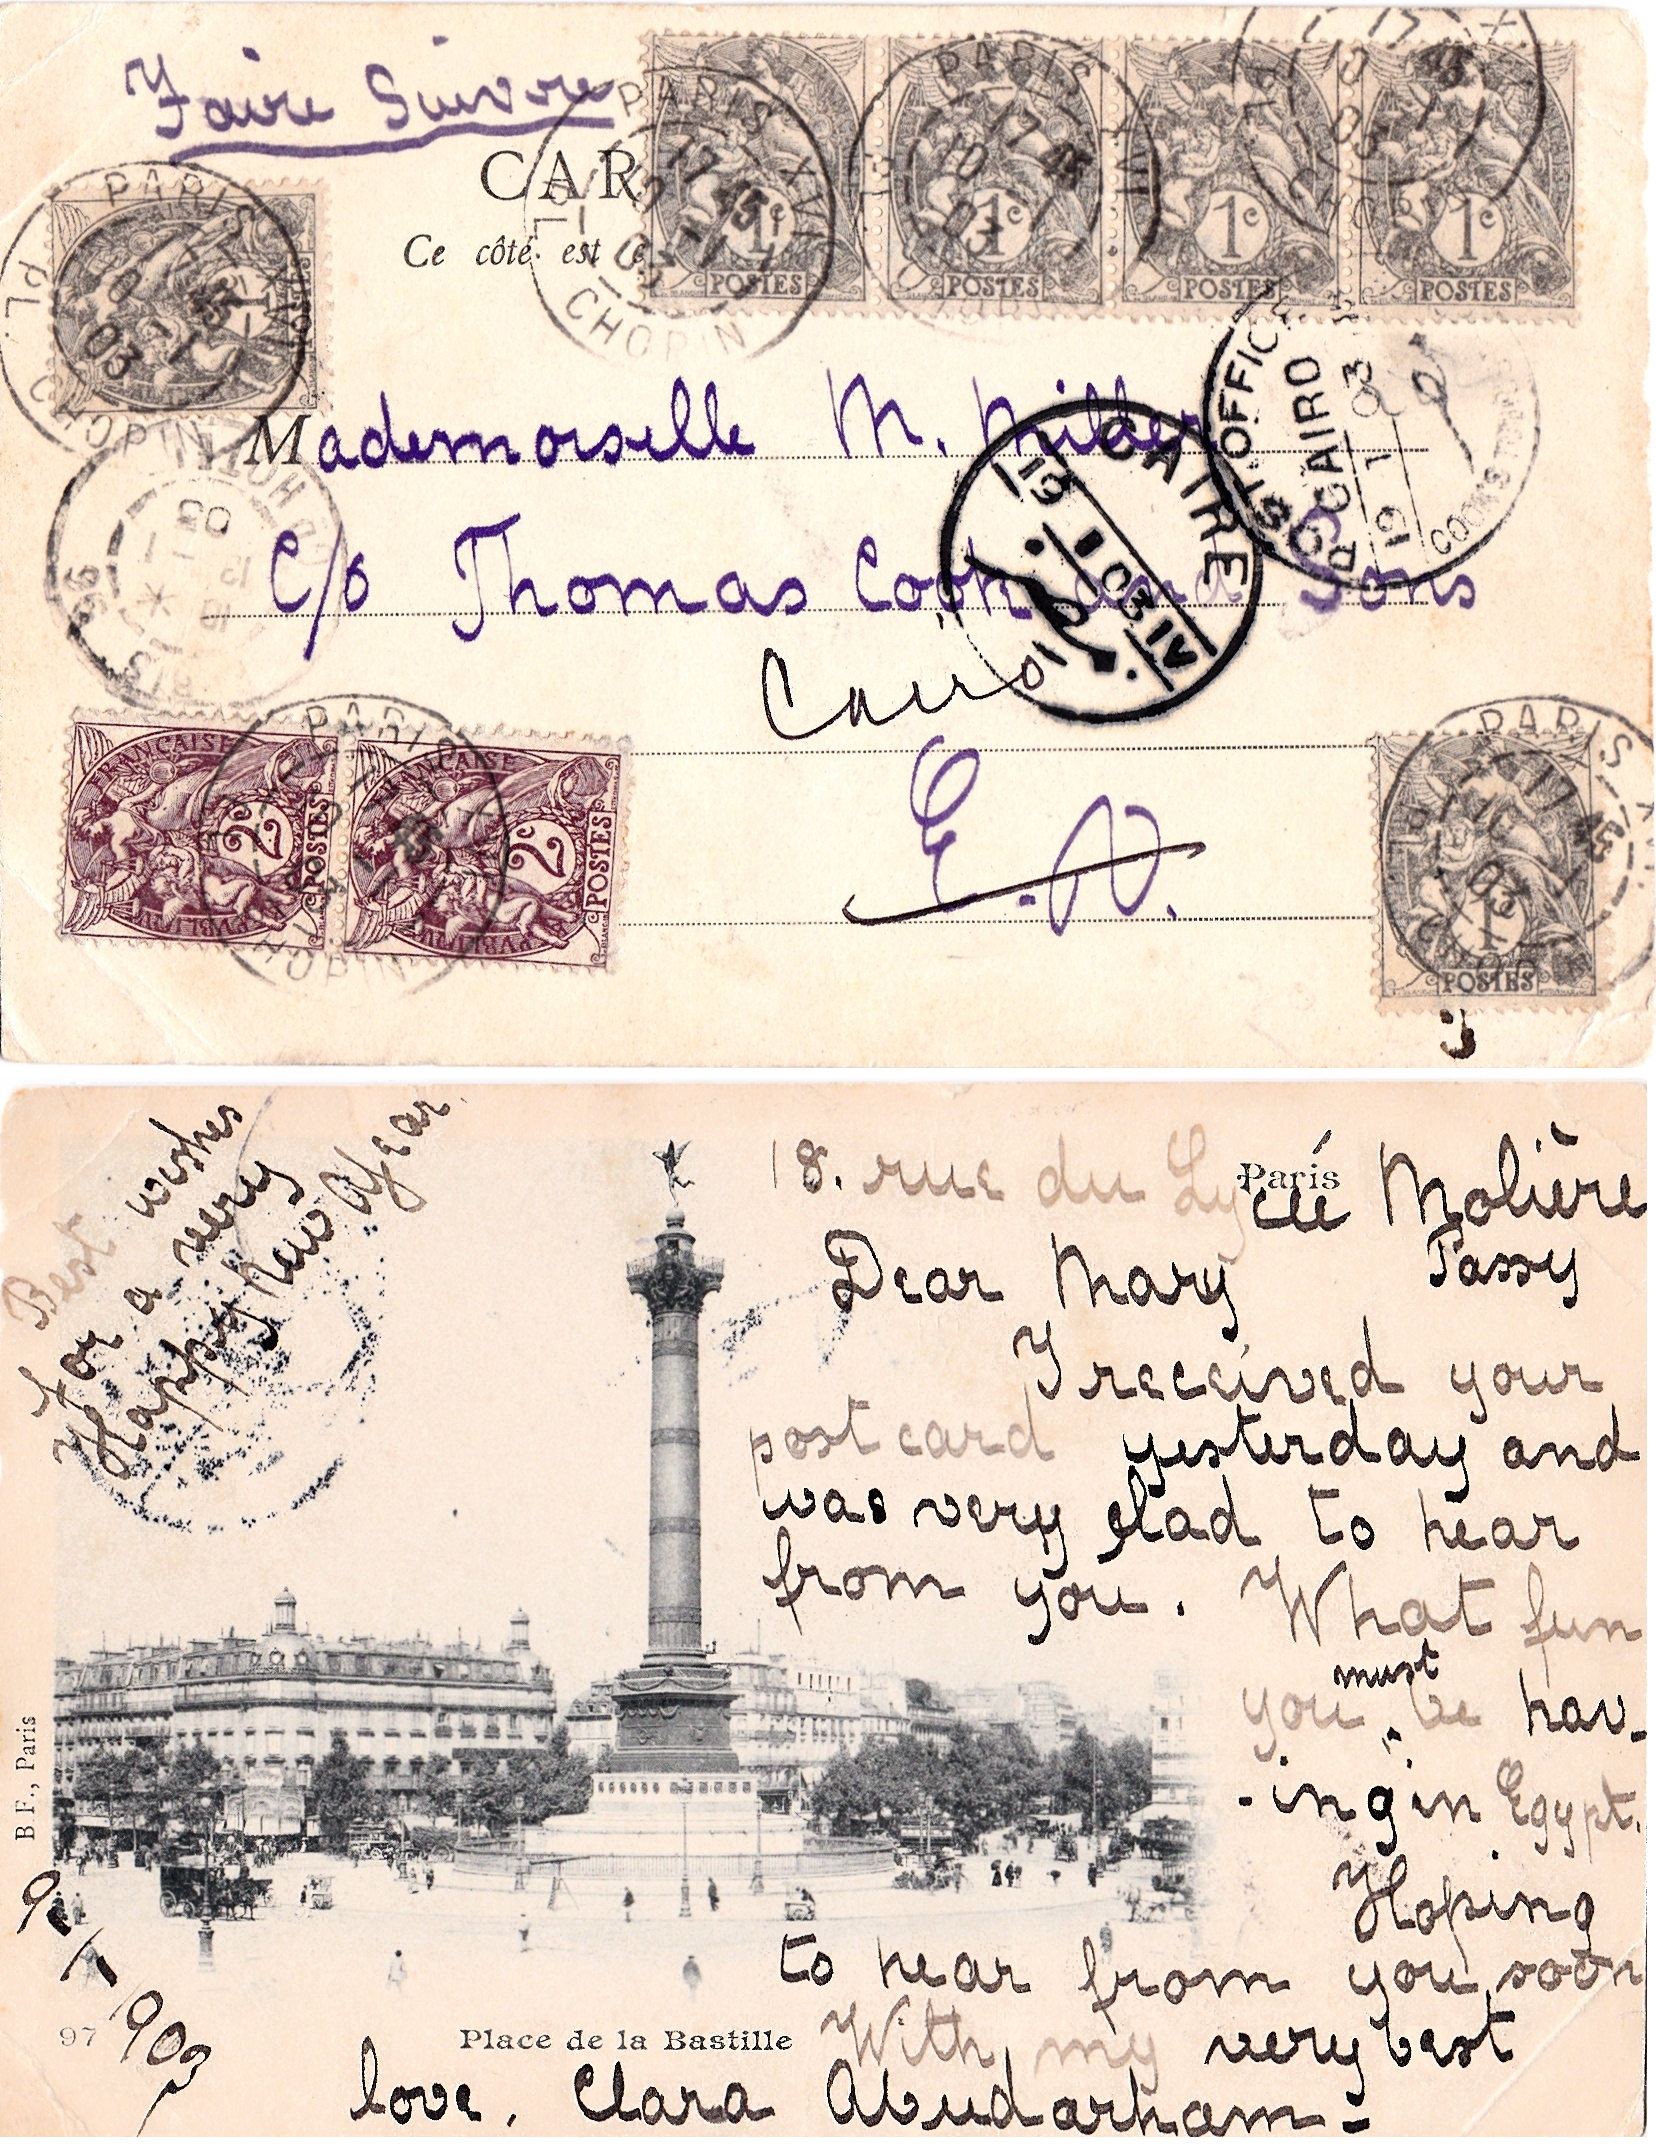 Faire Suivre
CAR
Ce côté est e
1c
POSTES
1c
POSTES
1c
POSTES
1c
POSTES
PARIS XVI
17 45
10 1
03
PL. CHOPIN
Mademoiselle M. Milder
c/o Thomas Cook and Sons
Cairo
E.V.
POST OFFICE
CAIRO
19 1 03
COOK & SON
CAIRE
19 I 03
FRANÇAISE
2c
POSTES
FRANÇAISE
2c
POSTES
PARIS XVI
17 45
03
1
POSTES
Best wishes
for a very
Happy New Year.
18. rue du Lycée Molière
Paris
Passy
Dear Mary
I received your
post card yesterday and
was very glad to hear
from you. What fun
you must be hav-
-ing in Egypt.
Hoping
to hear from you soon
With my very best
love. Clara Abudarham=
B.F., Paris
9/1/903
97
Place de la Bastille